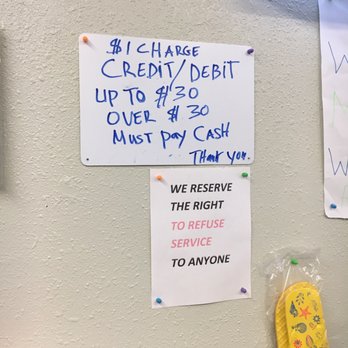 $1 CHARGE
CREDIT/DEBIT
UP TO $30
OVER $30
MUST PAY CASH
Thank You.
WE RESERVE
THE RIGHT
TO REFUSE
SERVICE
TO ANYONE
W
W